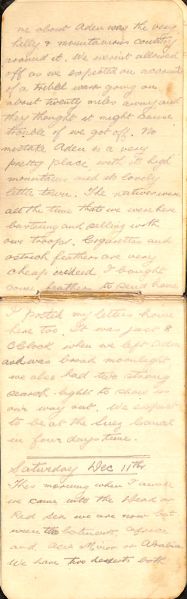 me about Aden was the very
hilly & mountainous country
around it. We weren't allowed
off as we expected on account
of a tribal war going on
about twenty miles away and
they thought it might cause
trouble if we got off. No
mistake Aden is a very
pretty place with its high
mountains and its lovely
little town. The natives were
all the time that we were here
bartering and selling with
our troops. Cigarettes and
ostrich feathers are very
cheap indeed I bought
some feathers to send home
I posted my letters home
here too. It was just 8
O'Clock when we left Aden
and was broad moonlight
we also had two strong
search lights to show us
our way out. We expect
to be at the Suez Canal
in four days time.
Saturday Dec 11th
This morning when I awoke
we came into the Head or
Red sea we are now but
between Africa
and Asia Minor or Arabia
We have two deserts both